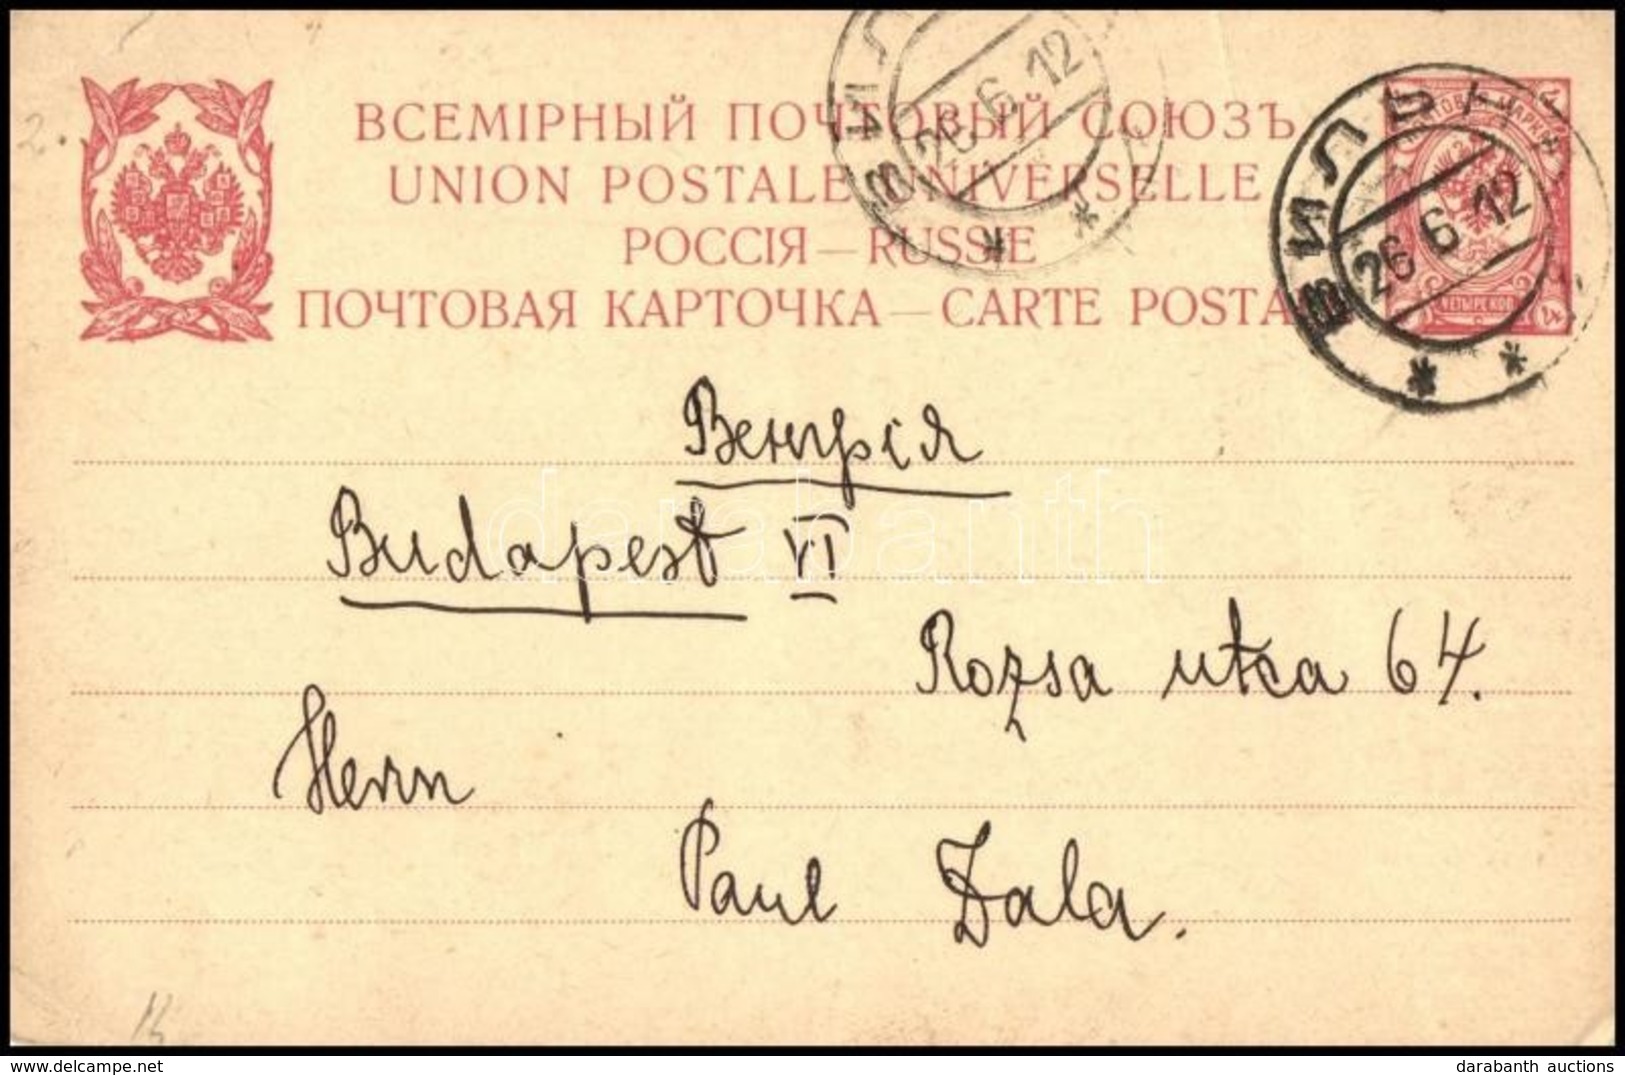 ВСЕМІРНЫЙ ПОЧТОВЫЙ СОЮЗЪ
UNION POSTALE UNIVERSELLE
РОССІЯ — RUSSIE
ПОЧТОВАЯ КАРТОЧКА — CARTE POSTA
26 6 12
ВИЛЬНА
26 6 12
ЧЕТЫРЕ КОП
Венгрія
Budapest VI
Rozsa utca 64.
Herrn
Paul Zala.
darabanth
darabanth auctions